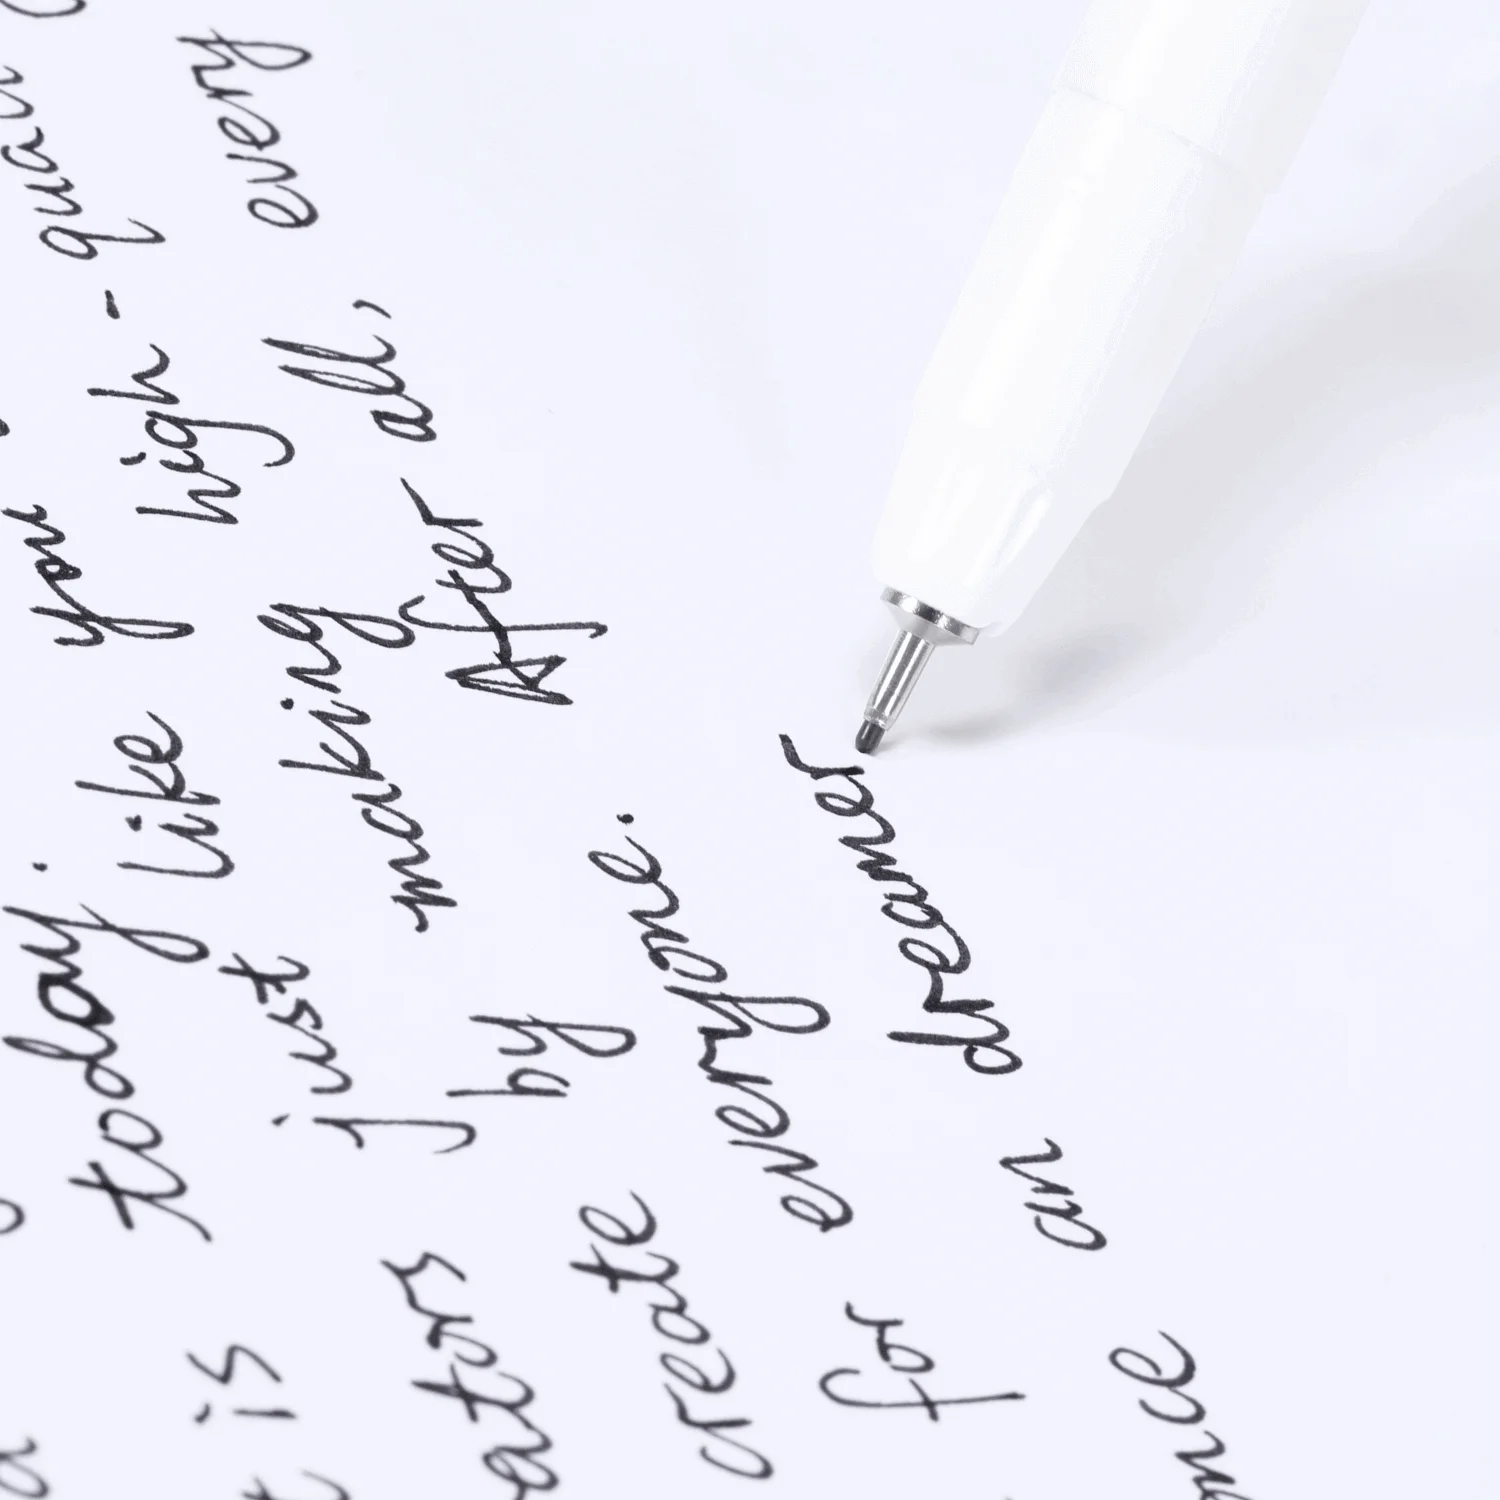 is today.
just like you
create by making high-
for everyone. After all, every
once an dreamer